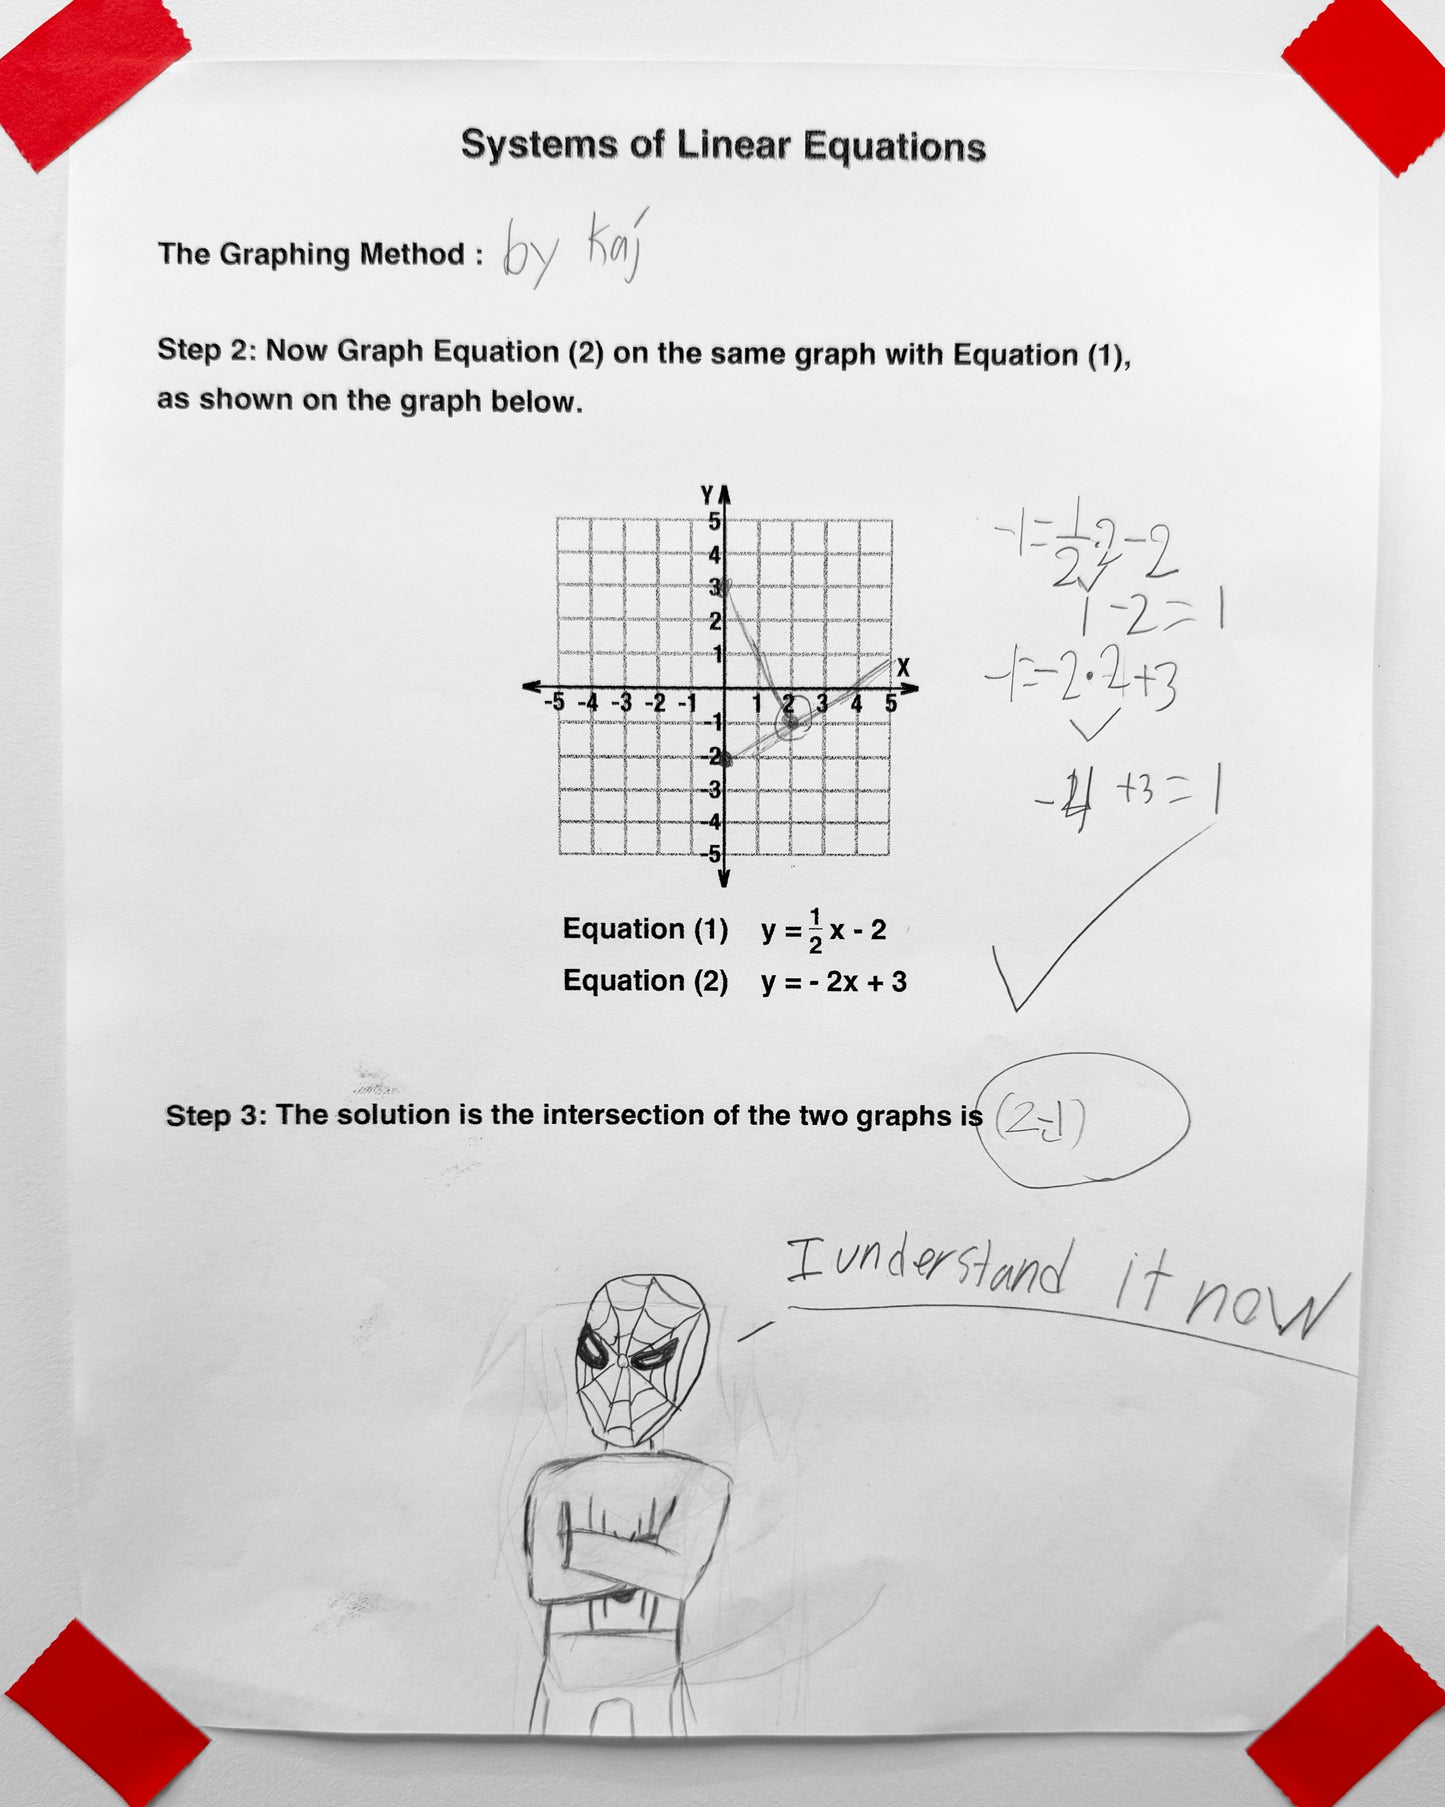 Systems of Linear Equations
The Graphing Method : by Kaj
Step 2: Now Graph Equation (2) on the same graph with Equation (1),
as shown on the graph below.
Y
5
4
3
2
1
X
-5 -4 -3 -2 -1 1 2 3 4 5
-1
-2
-3
-4
-5
-1=1/2·2-2
1-2=1
-1=-2·2+3
-4+3=1
Equation (1) y = 1/2 x - 2
Equation (2) y = - 2x + 3
Step 3: The solution is the intersection of the two graphs is (2,-1)
I understand it now